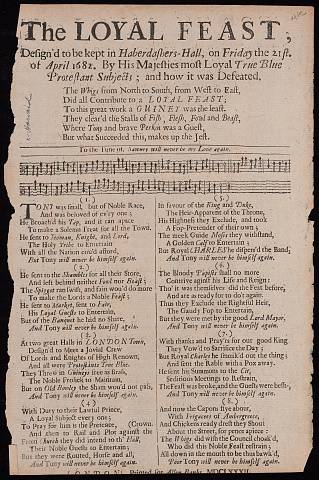 The LOYAL FEAST;
Design'd to be kept in Haberdashers-Hall, on Friday the 21st.
of April 1682. By His Majesties most Loyal True Blue
Protestant Subjects; and how it was Defeated.
The Whigs from North to South, from West to East,
Did all Contribute to a LOYAL FEAST;
To this great work a GUINEY was the least.
They clear'd the Stalls of Fish, Flesh, Fowl and Beast,
Where Tony and brave Perkin was a Guest,
But what Succeeded this, makes up the Jest.
To the Tune of, Sawney will never be my Love again.
(1.)
TONY was small, but of Noble Race,
And was beloved of ev'ry one;
He broach'd his Tap, and it ran apace
To make a Solemn Treat for all the Town.
He sent to Yeoman, Knight, and Lord,
The Holy Tribe to Entertain
With all the Nation cou'd afford,
But Tony will never be himself again.
(2.)
He sent to the Shambles for all their Store,
And left behind neither Fowl nor Feast;
The Spigget ran still, and fain wou'd do more
To make the Lords a Noble Feast;
He sent to Market, sent to Fair,
His Loyal Guests to Entertain,
But of the Banquet he had no Share,
And Tony will never be himself again.
(3.)
At two great Halls in LONDON Town,
Design'd to Meet a Jovial Crew
Of Lords and Knights of High Renown,
And all were Protestants True Blue.
They Threw in Guineys free as Grass,
The Noble Frolick to Maintain,
But on Old Rowley the Sham wou'd not pass,
And Tony will never be himself again.
(4.)
With Duty to their Lawful Prince,
A Loyal Subject every one;
To Pray for him is the Pretence, (Crown.
And then to Rail and Plot against the
From Church they did intend to th' Hall,
Their Noble Guests to Entertain;
But they were Routed, Horse and all,
And Tony will never be himself again.
(5.)
In favour of the King and Duke,
The Heir-Apparent of the Throne,
His Highness they Exclude, and took
A Fop-Pretender of their own;
The meek Guide Moses they withstand,
A Golden Calf to Entertain;
But Royal CHARLES he dispers'd the Band,
And Tony will never be himself again.
(6.)
The Bloody Papists shall no more
Contrive against his Life and Reign:
Tho' it was themselves did the Feat before,
And are as ready for to do't again.
Thus they Exclude the Rightful Heir,
The Gaudy Fop to Entertain,
But they were met by the good Lord Mayor,
And Tony will never be himself again.
(7.)
With thanks and Pray'rs for our good King
They Vow'd to Sacrifice the Day;
But Royal Charles he smoak'd out the thing;
And sent the Rabble with a Pox away.
He sent his Summons to the Cit,
Seditious Meetings to Restrain,
The Feast was broke, and the Guests were besh--,
And Tony will never be himself again.
(8.)
And now the Capons flye about,
With Fricacees of Ambergreece,
And Chickens ready drest they Shout
About the Street, for pence apiece:
The Whigs did wish the Council choak'd,
Who did this Noble Feast restrain;
All down in the mouth to be thus bawk'd,
Poor Tony will never be himself again.
LONDON: Printed for Allan Banks, MDCLXXXII.